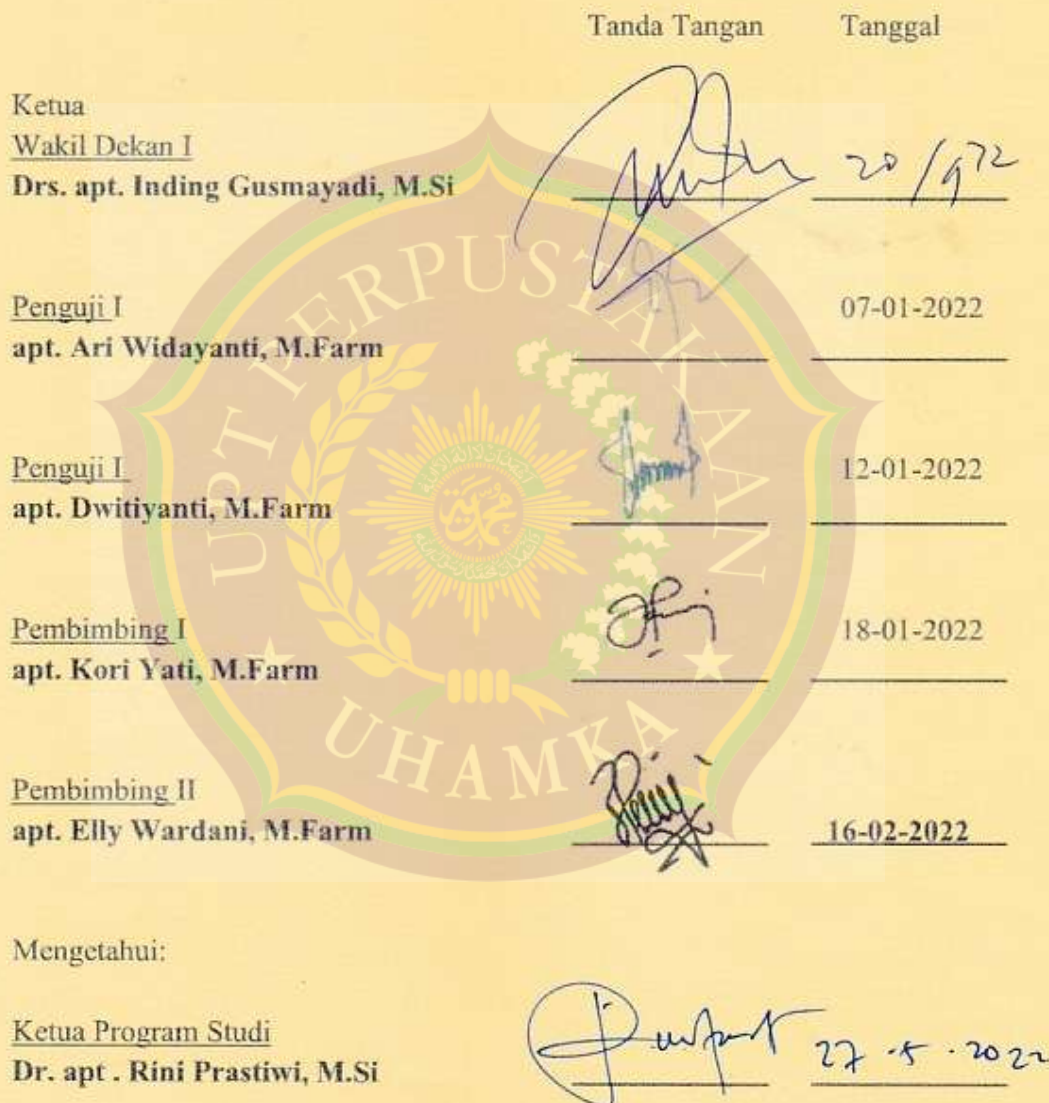 Tanda Tangan Tanggal
Ketua
Wakil Dekan I
Drs. apt. Inding Gusmayadi, M.Si
20/9 22
Penguji I
07-01-2022
apt. Ari Widayanti, M.Farm
Penguji I
12-01-2022
apt. Dwitiyanti, M.Farm
Pembimbing I
18-01-2022
apt. Kori Yati, M.Farm
Pembimbing II
apt. Elly Wardani, M.Farm
16-02-2022
Mengetahui:
Ketua Program Studi
Dr. apt . Rini Prastiwi, M.Si
27 -5 - 2022
UPT PERPUSTAKAAN
UHAMKA
محمد